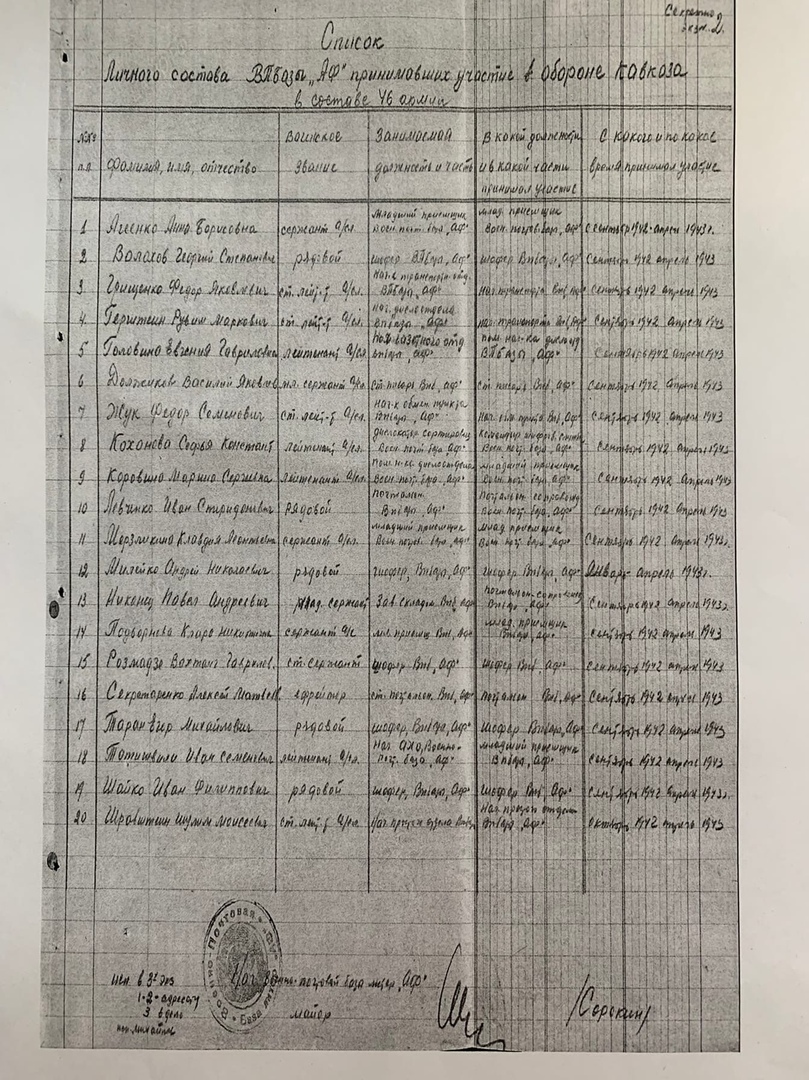 Секретно
экз. 2.
Список
Личного состава ВПбазы „АФ" принимавших участие в обороне Кавказа
в составе 46 армии
№№ п.п. Фамилия, имя, отчество Воинское звание Занимаемая должность и часть В какой должности и в какой части принимал участие С какого и по какое время принимал участие
1 Агеенко Анна Борисовна сержант а/сл. младший приемщик Воен. почт. база „АФ" млад. приемщик Воен. почтов. база „АФ" Сентябрь 1942 - апрель 1943г.
2 Валахов Георгий Степанович рядовой шофер ВПбаза „АФ" шофер ВПбаза „АФ" Сентябрь 1942 апрель 1943
3 Грищенко Федор Яковлевич ст. лейт-т а/сл. нач-к транспортн. отд. ВПбаза „АФ" нач. транспорта ВПб „АФ" Сентябрь 1942 апрель 1943
4 Герштеин Рувим Маркович ст. лейт-т а/сл. нач. дислотдела ВПбаза „АФ" нач. транспорта ВПб „АФ" Сентябрь 1942 апрель 1943
5 Головина Евгения Гавриловна лейтенант а/сл. нач. газетного отд ВПбаза „АФ" пом. нач-ка ВПбазы „АФ" Сентябрь 1942 апрель 1943
6 Должиков Василий Яковлев мл. сержант ст. писарь ВПб „АФ" ст. писарь ВПб „АФ" Сентябрь 1942 апрель 1943
7 Жук Федор Семенович ст. лейт-т а/сл. нач-к обмен. пункта ВПбаза „АФ" нач. обм. пункта ВПб „АФ" Сентябрь 1942 апрель 1943
8 Коханова Софья Констант лейтенант а/сл. Воен. почт. база „АФ" Воен. почт. база „АФ" Сентябрь 1942 апрель 1943
9 Коровина Марина Сергеевна лейтенант а/сл. пом. н-ка дислотдела Воен. почт. база „АФ" младший приемщик Воен. почт. база „АФ" Сентябрь 1942 апрель 1943
10 Левченко Иван Спиридонович рядовой почтальон ВПбаза „АФ" почтальон сопровожд Воен. почт. база „АФ" Сентябрь 1942 апрель 1943
11 Мерзликина Клавдия Леонтьевна сержант а/сл. младший приемщик Воен. почтов. база „АФ" млад приемщик Воен. почт. база „АФ" Сентябрь 1942 апрель 1943г.
12 Милейко Андрей Николаевич рядовой шофер, ВПбаза „АФ" шофер ВПбаза „АФ" Январь апрель 1943г.
13 Никонец Павел Андреевич млад. сержант Зав. складом ВПб „АФ" почтальон сопровожд ВПбаза „АФ" Сентябрь 1942 апрель 1943г.
14 Подворнова Клара Никитична сержант а/с мл. приемщ. ВПб „АФ" млад. приемщик ВПбаза „АФ" Сентябрь 1942 апрель 1943
15 Размадзе Вахтанг Гаврилов. ст. сержант шофер ВПб „АФ" шофер ВПб „АФ" Сентябрь 1942 апрель 1943
16 Секретаренко Алексей Матвеев ефрейтор ст. почтальон ВПб „АФ" почтальон ВПб „АФ" Сентябрь 1942 апрель 1943
17 Таран Михайлович рядовой шофер, ВПбаза „АФ" шофер ВПбаза „АФ" Сентябрь 1942 апрель 1943
18 Татишвили Иван Семенович лейтенант а/сл. нач АХО, Военно-почт. база „АФ" младший приемщик ВПбаза „АФ" Сентябрь 1942 апрель 1943
19 Шайко Иван Филиппович рядовой шофер, ВПбаза „АФ" шофер ВПбаза „АФ" Сентябрь 1942 апрель 1943г.
20 Моисеевич ст. лейт-т а/сл. ВПбаза „АФ" Октябрь 1942 апрель 1943
Военно-Почтовая База
Нач Военно-почтовой база литер „АФ"
майор
/Сорокин/
исп. в 3х экз
1-2-адресату
3 в дело